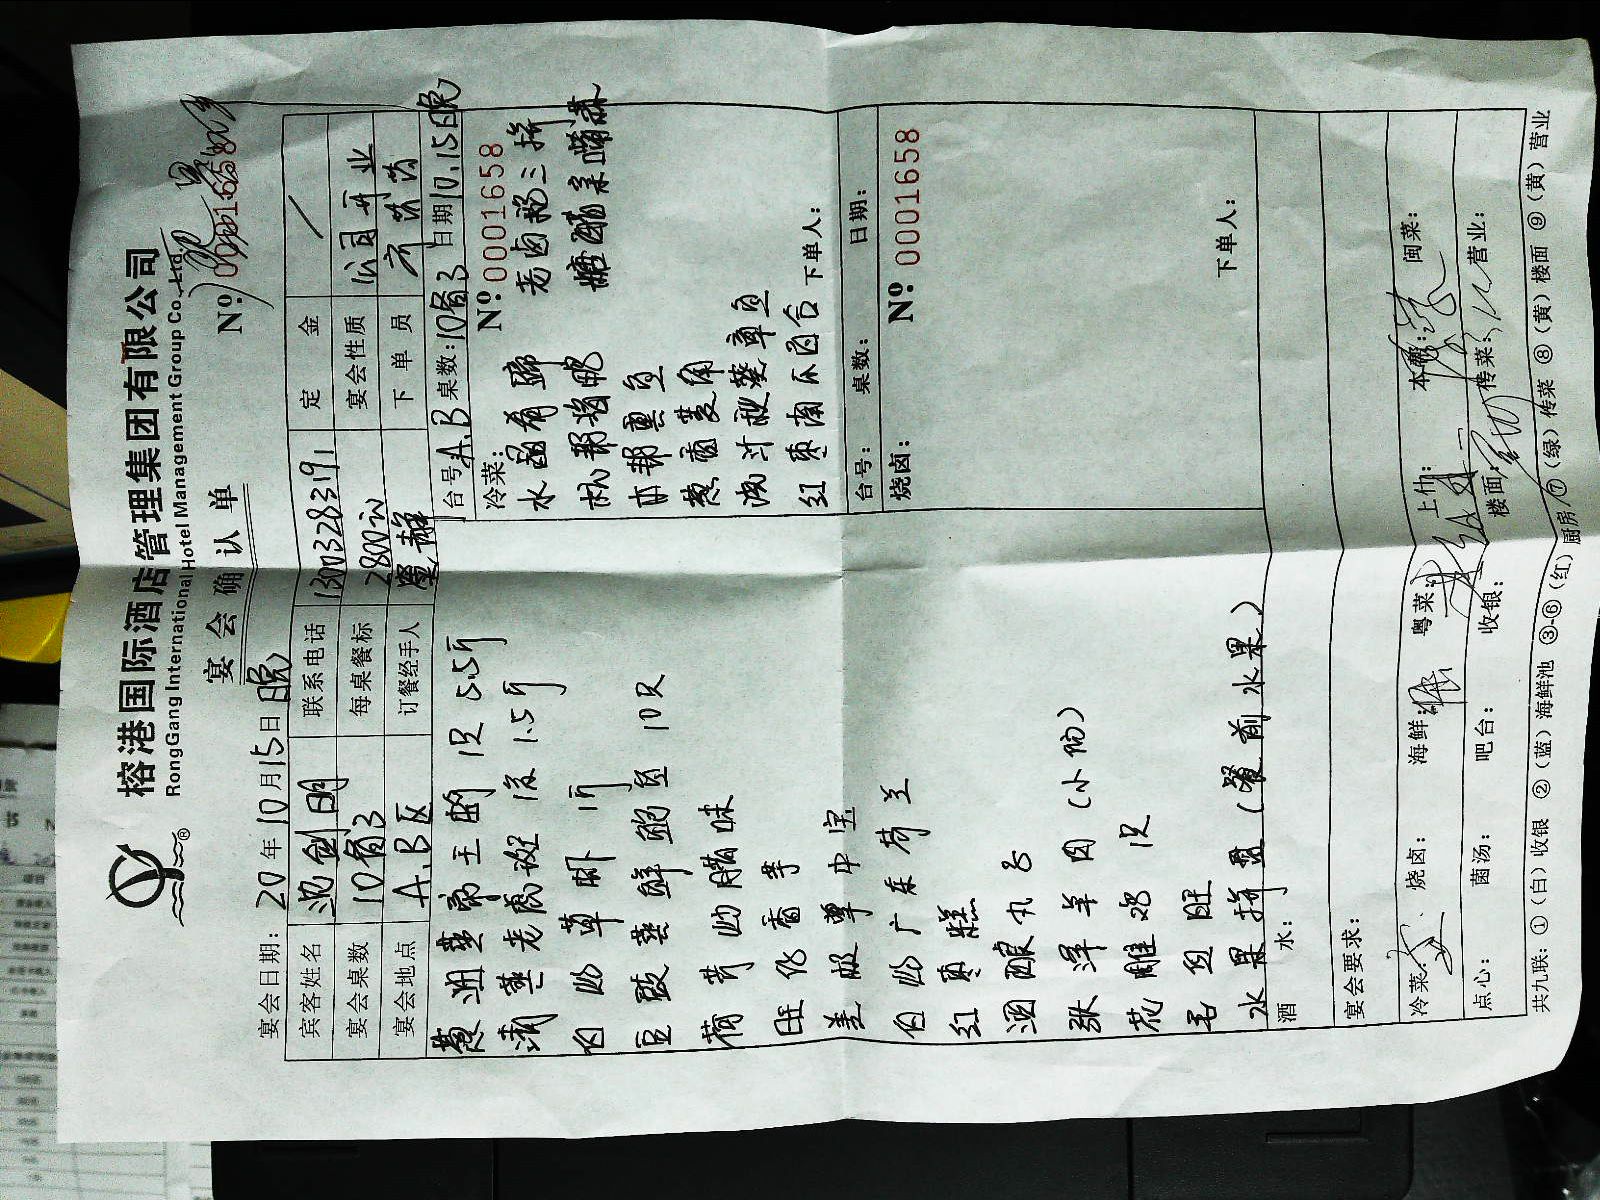 榕港国际酒店管理集团有限公司
RongGang International Hotel Management Group Co.,Ltd.
宴会确认单
宴会日期: 20 年 10 月 15 日 晚 Nº: 0001658
宾客姓名 池剑明 联系电话 13003283191 定金 /
宴会桌数 10备3 每桌餐标 2800元 宴会性质 公司开业
宴会地点 A.B区 订餐经手人 下单员
台号 A.B 桌数: 10备3 日期 10.15晚
冷菜: Nº: 0001658
水晶肴蹄 老卤鸭三拼
杭帮酱鸭
本帮熏鱼
葱油秋葵章鱼
红枣南瓜百合
下单人:
葱油 帝王 1只 5.5斤
清蒸老虎斑 1条 1.5斤
白灼草虾 1斤
豆豉蒸鲜鲍鱼 10只
荷芹炒腊味
白灼广东芥兰
红枣糕
酒酿丸子
羊肉 (小的)
花雕鸡 1只
毛血旺
水果拼盘 (餐前水果)
台号: 桌数: 日期:
烧卤: Nº: 0001658
下单人:
酒水:
宴会要求:
冷菜: 烧卤: 海鲜: 粤菜: 上什: 本帮: 闽菜:
点心: 菌汤: 吧台: 收银: 楼面: 传菜: 营业:
共九联: ①(白)收银 ②(蓝)海鲜池 ③-⑥(红)厨房 ⑦(绿)传菜 ⑧(黄)楼面 ⑨(黄)营业